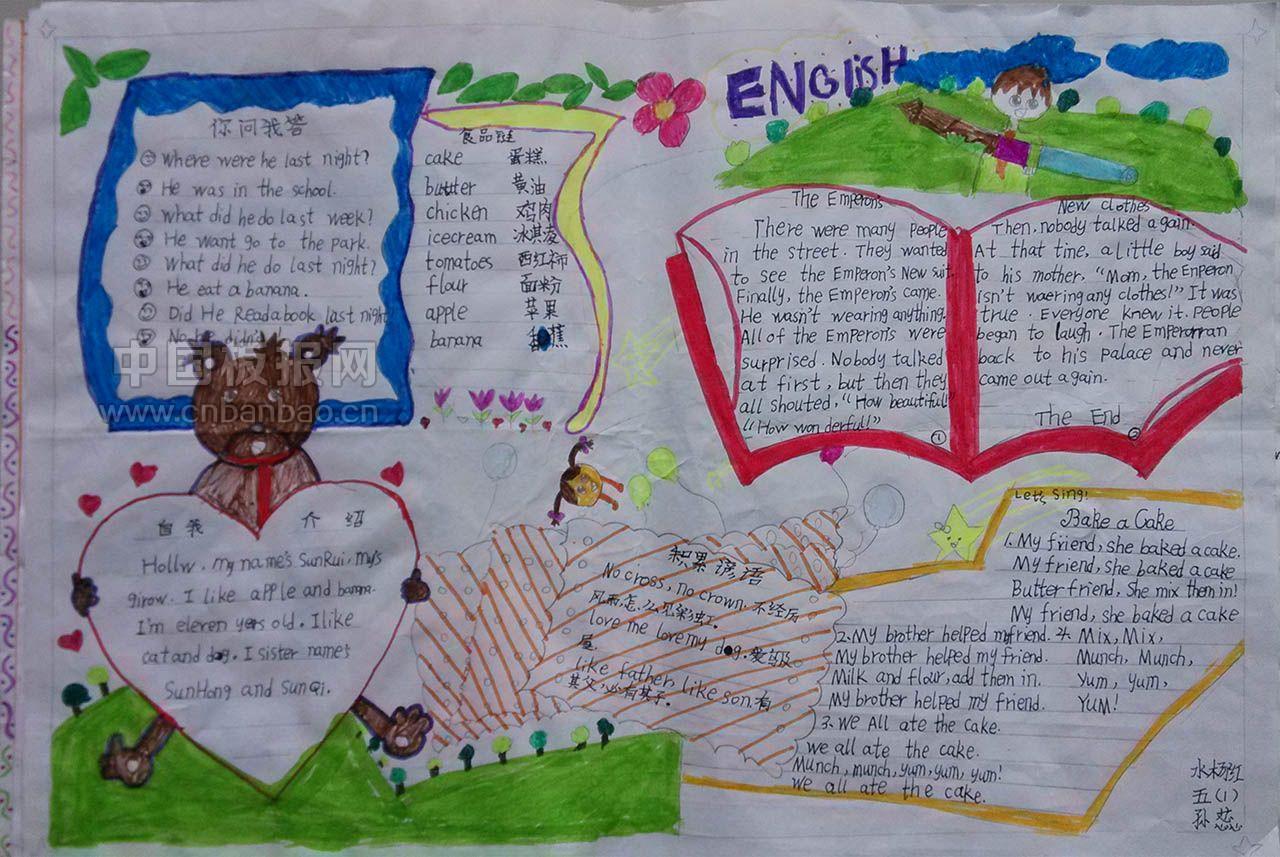 ENGLISH
你问我答
Where were he last night?
He was in the school.
What did he do last week?
He want go to the park.
What did he do last night?
He eat a banana.
Did He Read a book last night
No he didn't
中国板报网
www.cnbanbao.cn
食品链
cake 蛋糕
butter 黄油
chicken 鸡肉
icecream 冰淇凌
tomatoes 西红柿
flour 面粉
apple 苹果
banana 蕉
The Emperor's
There were many people
in the street. They wanted
to see the Emperor's New suit.
Finally, the Emperor's came.
He wasn't wearing anything.
All of the Emperor's were
surprised. Nobody talked
at first, but then they
all shouted, "How beautiful"
"How wonderful!"
①
New clothes
Then, nobody talked again.
At that tine, a little boy said
to his mother, "Mom, the Enperon
isn't waering any clothes!" It was
true. Everyone knew it. People
began to laugh. The Emperorran
back to his palace and never
came out again.
The End
②
自我介绍
Hollw. my name's SunRui, my's
girow. I like apple and banna.
I'm eleren yers old. I like
cat and dog. I sister name's
SunHong and SunQi.
积累谚语
No cross, no crown. 不经历
风雨,怎么见彩虹。
love me love my dog. 爱屋及
屋
like father, like son. 有
其父,必有其子。
Let's Sing!
Bake a Cake
1. My friend, she baked a cake.
My friend, she baked a cake
Butter friend, She mix them in!
My friend, she baked a cake
2. My brother helped my friend.
My brother helped my friend.
Milk and flour, add them in.
My brother helped my friend.
3. we All ate the cake.
we all ate the cake.
Munch, munch, yum, yum, yum!
we all ate the cake.
4. Mix, Mix,
Munch, Munch,
Yum, yum,
YUM!
五(1)
孙蕊